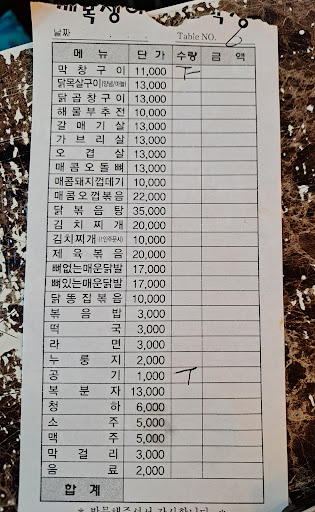 날짜 Table NO. 6
메 뉴 단 가 수량 금 액
막 창 구 이 11,000 ㅜ
닭목살구이(양념/마늘) 13,000
닭 곱 창 구 이 13,000
해 물 부 추 전 10,000
갈 매 기 살 13,000
가 브 리 살 13,000
오 겹 살 13,000
매 콤 오 돌 뼈 13,000
매콤돼지껍데기 10,000
매콤오껍볶음 22,000
닭 볶 음 탕 35,000
김 치 찌 개 20,000
김치찌개(1인주문시) 10,000
제 육 볶 음 20,000
뼈없는매운닭발 17,000
뼈있는매운닭발 17,000
닭 똥 집 볶 음 10,000
볶 음 밥 3,000
떡 국 3,000
라 면 3,000
누 룽 지 2,000
공 기 1,000 ㅜ
복 분 자 13,000
청 하 6,000
소 주 5,000
맥 주 5,000
막 걸 리 3,000
음 료 2,000
합 계